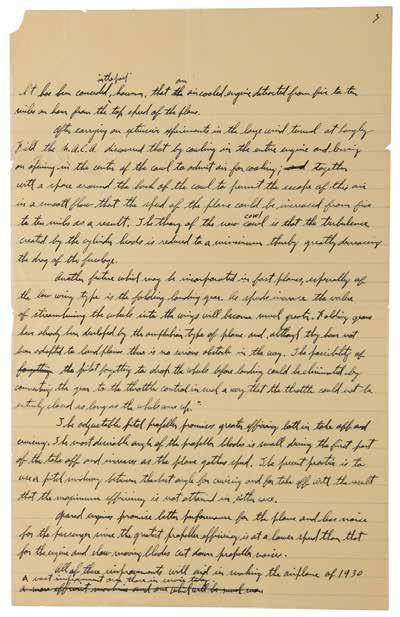 3
in the past an
It has been conceded, however, that the air cooled engine detracted from five to ten
miles an hour from the top speed of the plane.
After carrying on extensive experiments in the large wind tunnel at Langley
Field the N.A.C.A. discovered that by cowling in the entire engine and leaving
an opening in the center of the cowl to admit air for cooling, and together
with a space around the back of the cowl to permit the escape of this air
in a smooth flow that the speed of the plane could be increased from five
to ten miles as a result. The theory of the new cowl is that the turbulence
created by the cylinder heads is reduced to a minimum thereby greatly decreasing
the drag of the fuselage.
Another feature which may be incorporated in fast planes, especially of
the low wing type is the folding landing gear. As speeds increase the value
of streamlining the wheels into the wings will become much greater. Folding gears
have already been developed by the amphibian type of plane and, although they have not
been adapted to land planes there is no serious obstacle in the way. The possibility of
forgetting the pilot forgetting to drop the wheels before landing could be eliminated by
connecting the gear to the throttle control in such a way that the throttle could not be
entirely closed so long as the wheels were up."
The adjustable pitch propeller promises greater efficiency both in take off and
cruising. The most desirable angle of the propeller blades is small during the first part
of the take off and increases as the plane gathers speed. The present practice is to
use a pitch midway between the best angle for cruising and for take off with the result
that the maximum efficiency is not attained in either case.
Geared engines promise better performance for the plane and less noise
for the passenger since the greatest propeller efficiency is at a lower speed than that
for the engine and slow moving blades cut down propeller noise.
All of these improvements will aid in making the airplane of 1930
a vast improvement over those in service today
a more efficient machine and one which will be much more